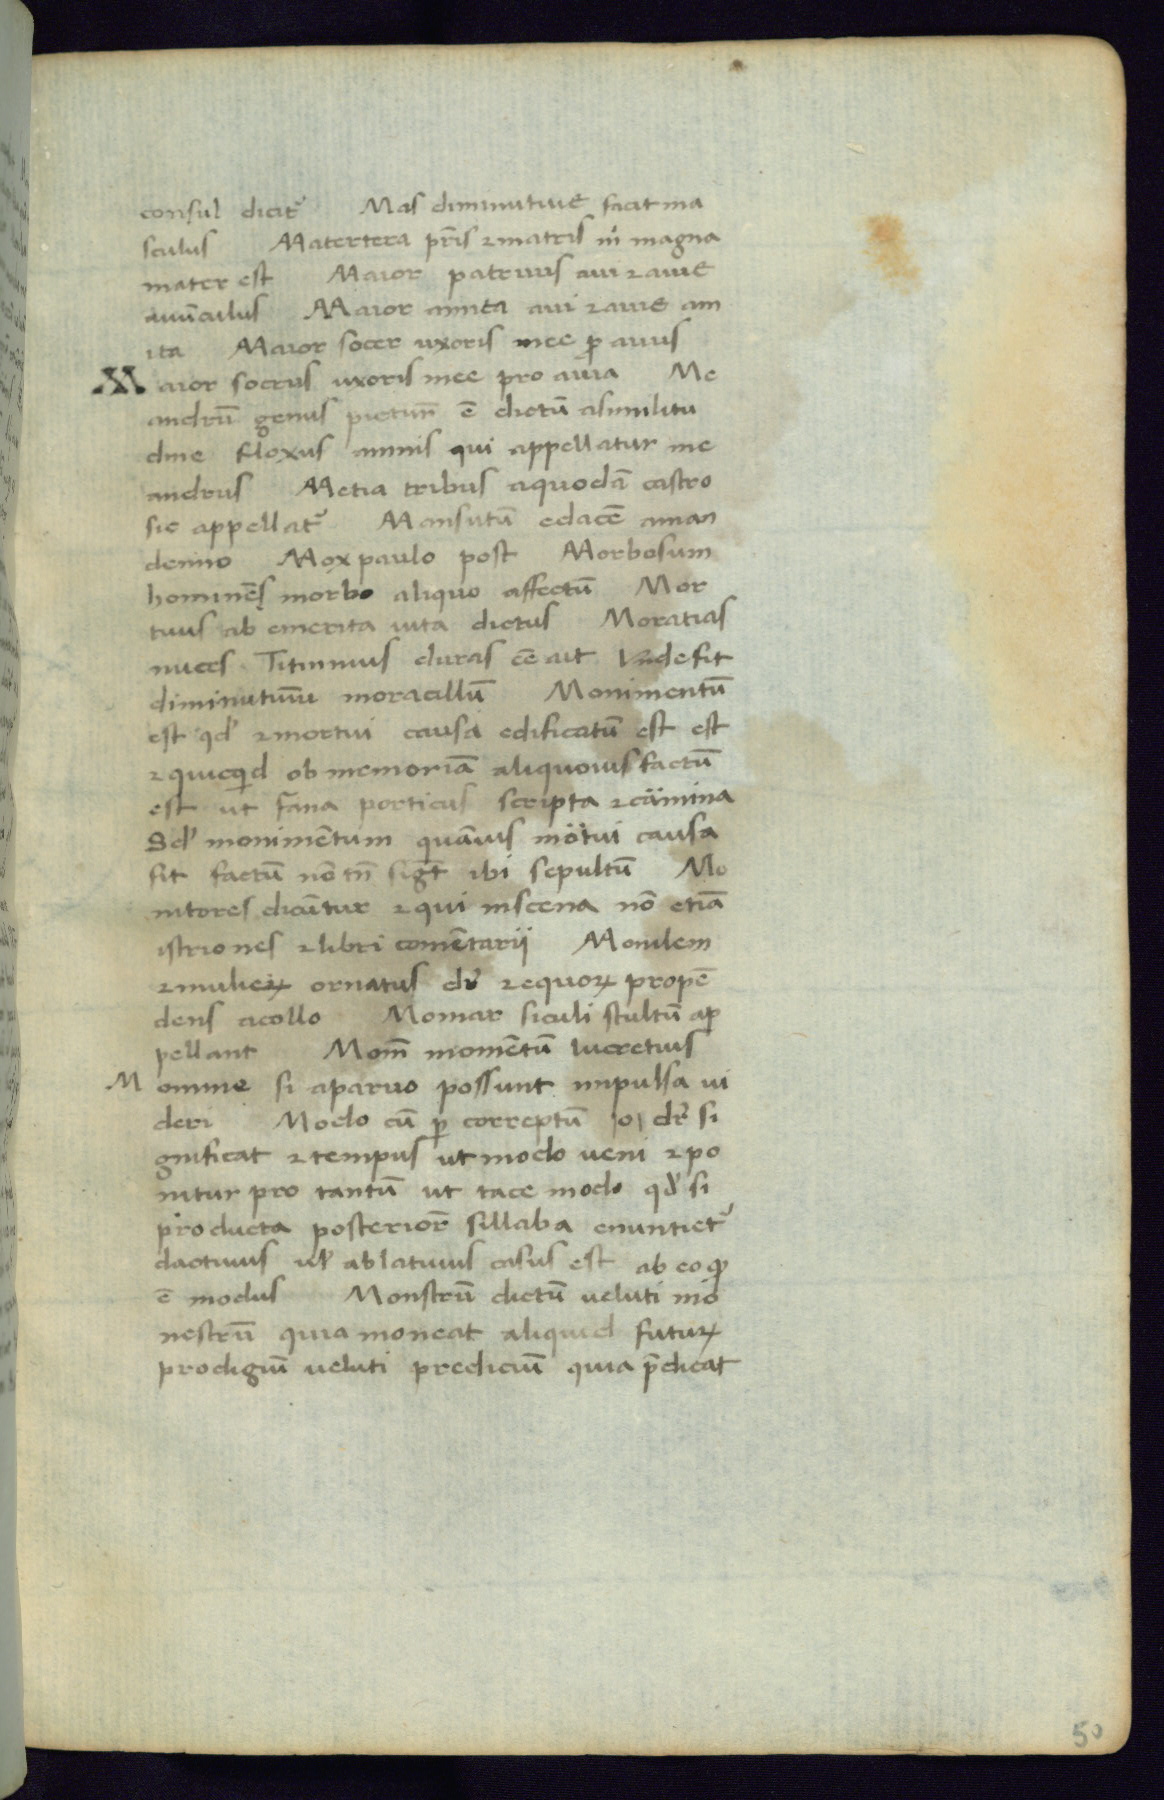 consul dicit᷑ Mas diminutiuę facit ma
sculus Matertera p̄ris ⁊ matris m̄ magna
mater est Maior patruus aui ⁊ auię
auūculus Maior amita aui ⁊ auię am
ita Maior socer uxoris mee ꝓ auus
Maior socrus uxoris mee pro auia Me
andrū genus pictur̄ ē dictū asimilitu
dine flexus amnis qui appellatur me
andrus Metia tribus aquodā castro
sic appellat᷑ Mansutū edacē aman
dendo Mox paulo post Morbosum
hominēs morbo aliquo affectū Mor
tuus ab emerita uita dictus Moratias
nuces Titinnius duras ēē ait Vnde fit
diminutiuū moracillū Monimentū
est qd̓ ⁊ mortui causa edificatū est est
⁊ quicqͥd ob memoriā alicuius factū
est ut fana porticus scripta ⁊ cāmina
Sed̓ monimētum quāuis mōtui causa
sit factū nō tn̄ sigt̄ ibi sepultū Mo
nitores dicūtur ⁊ qui inscena nō etiā
istriones ⁊ libri comētarii Monilem
⁊ mulieꝝ ornatus dr̄ ⁊ equoꝝ propē
dens acollo Momar siculi stultū ap
pellant Mom̄ momētū lucretius
Momine si aparuo possunt impulsa ui
deri Modo cū ꝑ correptū |o| dr̄ si
gnificat ⁊ tempus ut modo ueni ⁊ po
nitur pro tantū ut tace modo qd̓ si
producta posterior̄ sillaba enuntiet᷑
dactiuus ul̓ ablatiuus casus est ab eo qͦ
ē modus Monstrū dictū ueluti mo
nestrū quia moneat aliquid futuꝝ
prodigiū ueluti prediciū quia p̄dicat
50